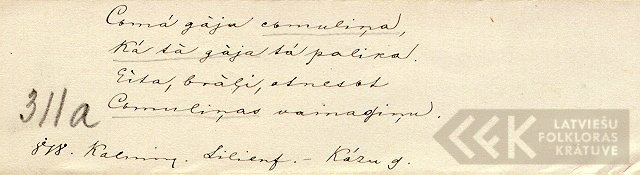 Comá gāja comuliņa,
Ká tā gāja tá palika.
Eita, brāļi, atnesot
Comuliņas vainagiņu.
311a
878. Kalniņ. Lilienf. – Kázu g.
LATVIEŠU
FOLKLORAS
KRĀTUVE